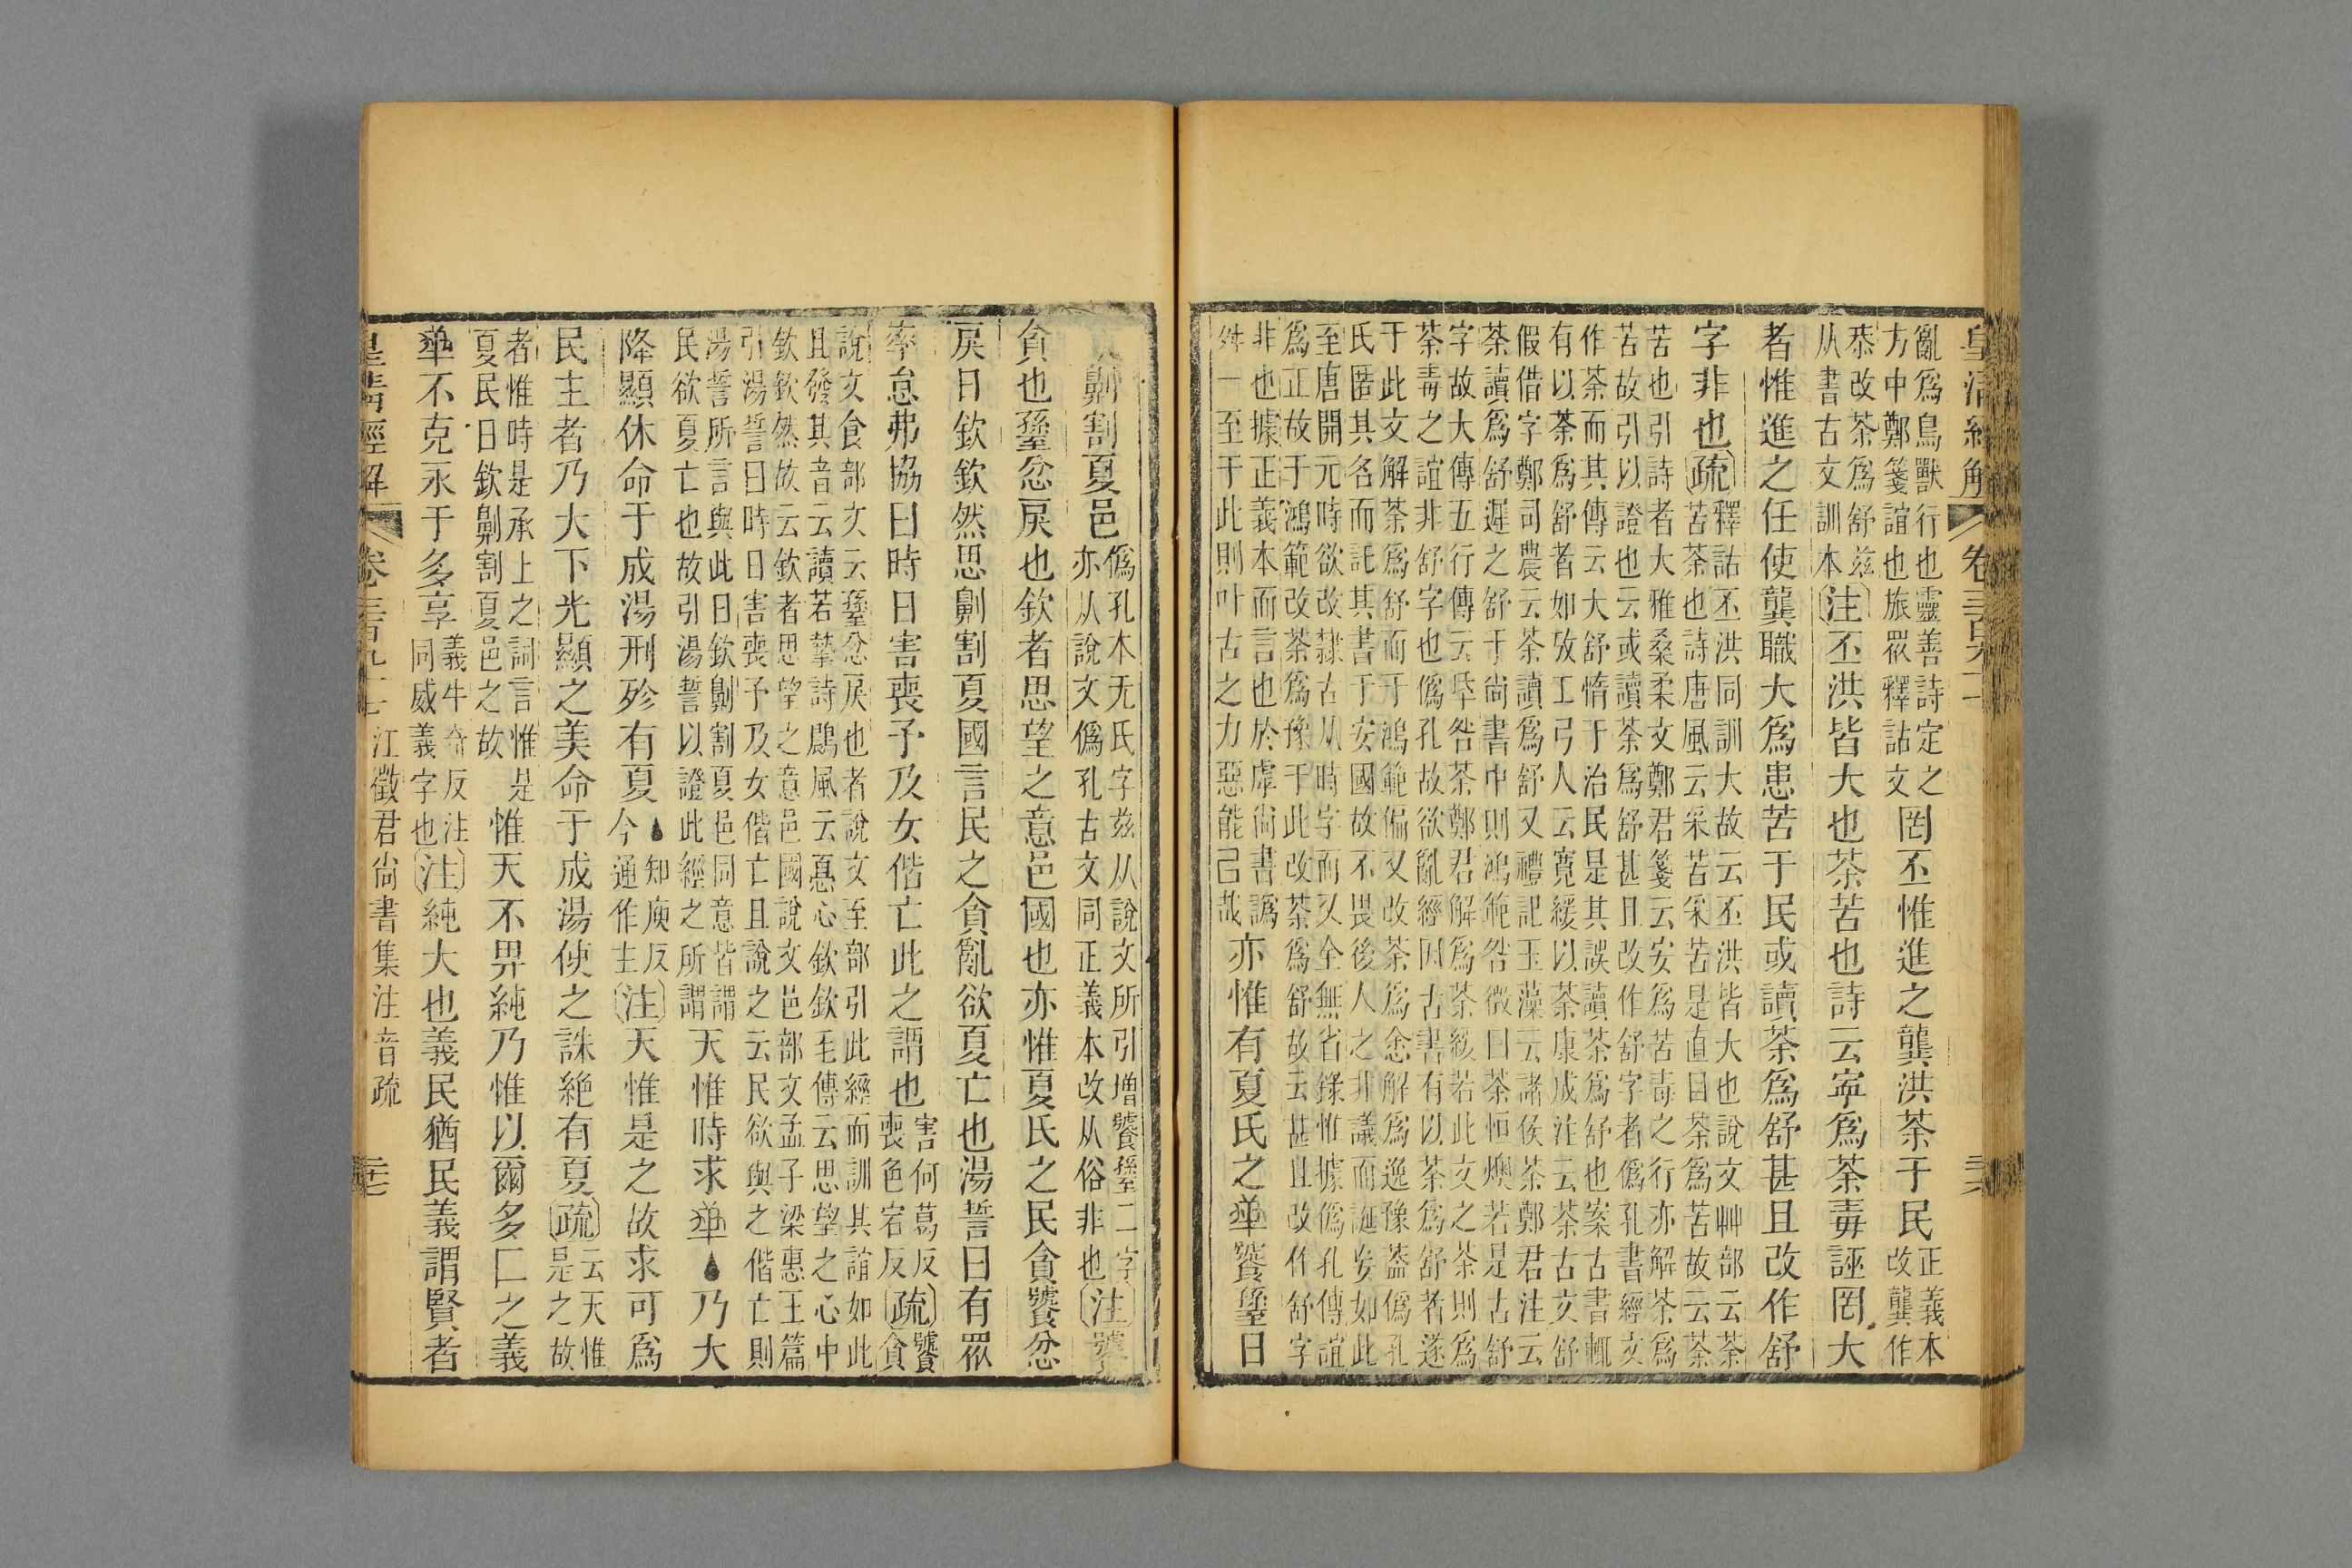 皇清經解 卷三百九十七
亂爲鳥獸行也靈善詩定之
方中鄭箋誼也旅眾釋詁文
罔丕惟進之龔洪荼于民
正義本
改龔作
恭改荼爲舒兹
从書古文訓本
注丕洪皆大也荼苦也詩云寧爲荼毒誣罔大
者惟進之任使龔職大爲患苦于民或讀荼爲舒甚且改作舒
字非也疏
釋詁丕洪同訓大故云丕洪皆大也說文艸部云荼
苦荼也詩唐風云采苦采苦是直曰荼爲苦故云荼
苦也引詩者大雅桑柔文鄭君箋云安爲苦毒之行亦解荼爲
苦故引以證也云或讀荼爲舒甚且改作舒字者僞孔書經文
作荼而其傳云大舒惰于治民是其誤讀荼爲舒也案古書輒
有以荼爲舒者如攷工弓人云寬緩以荼康成注云荼古文舒
假借字鄭司農云荼讀爲舒又禮記玉藻云諸侯荼鄭君注云
荼讀爲舒遲之舒于尙書中則鴻範咎徵曰荼恒燠若是古舒
字故大傳五行傳云厥咎荼鄭君解爲荼緩若此文之荼則爲
荼毒之誼非舒字也僞孔故欲亂經因古書有以荼爲舒者遂
于此文解荼爲舒而于鴻範偏又改荼爲悆解爲逸豫蓋僞孔
氏匿其名而託其書于安國故不畏後人之非議而誕妄如此
至唐開元時欲改隸古从時字而又全無省錄惟據僞孔傳誼
爲正故于鴻範改荼爲豫于此改荼爲舒故云甚且改作舒字
非也據正義本而言也於虖尙書譌
舛一至于此則叶古之力惡能已哉
亦惟有夏氏之㽙饕䥝日
劓割夏邑
僞孔本无氏字兹从說文所引增饕䥝二字
亦从說文僞孔古文同正義本改从俗非也
注
貪也䥝忿戾也欽者思望之意邑國也亦惟夏氏之民貪饕忿
戾日欽欽然思劓割夏國言民之貪亂欲夏亡也湯誓曰有眾
率怠弗協曰時日害喪予及女偕亡此之謂也
害何葛反
喪色宕反
疏
饕
貪
說文食部文云䥝忿戾也者說文至部引此經而訓其誼如此
且發其音云讀若摯詩鴥風云憂心欽欽毛傳云思望之心中
欽欽然故云欽者思望之意邑國說文邑部文孟子梁惠王篇
引湯誓曰時日害喪予及女偕亡且說之云民欲與之偕亡則
湯誓所言與此日欽劓割夏邑同意皆謂
民欲夏亡也故引湯誓以證此經之所謂
天惟時求㽙乃大
降顯休命于成湯刑殄有夏
知庾反
今通作主
注天惟是之故求可爲
民主者乃大下光顯之美命于成湯使之誅絶有夏疏
云天惟
是之故
者惟時是承上之詞言惟是
夏民日欽劓割夏邑之故
惟天不畀純乃惟以爾多匚之義
㽙不克永于多享
義牛奇反注
同威義字也
注純大也義民猶民義謂賢者
皇清經解 卷三百九十七 江徵君尙書集注音疏